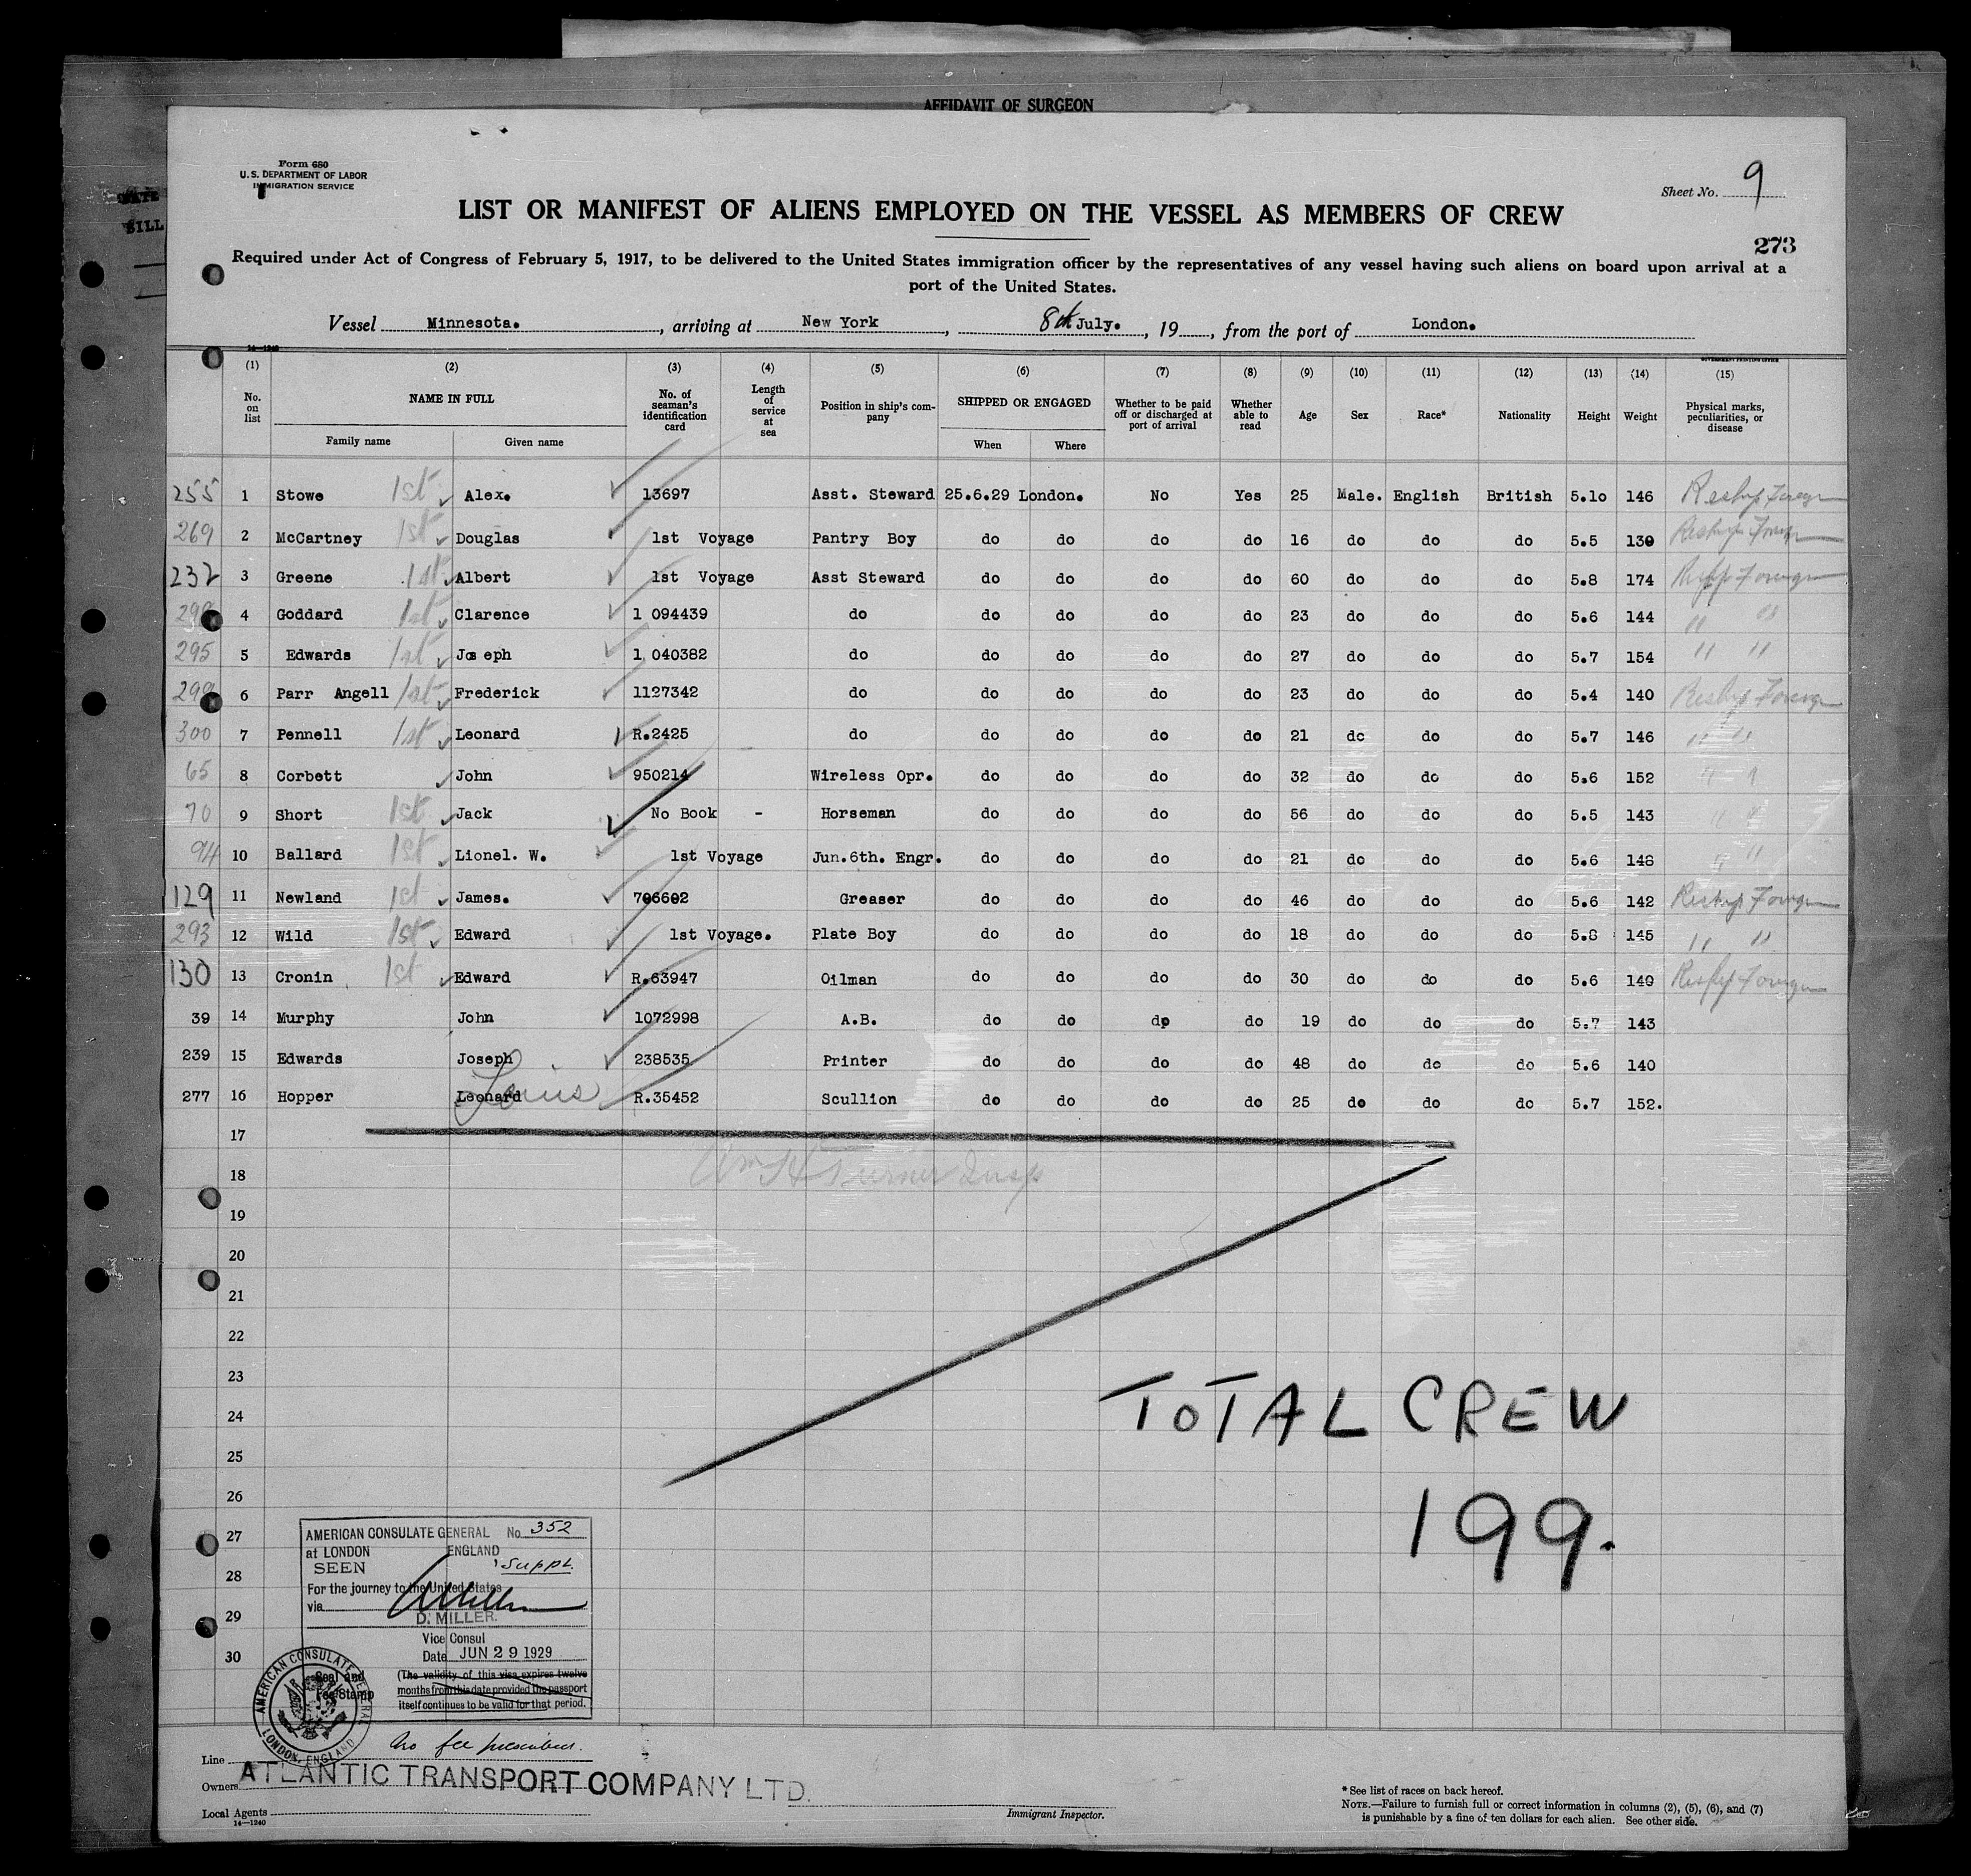 AFFIDAVIT OF SURGEON
Form 680
U. S. DEPARTMENT OF LABOR
IMMIGRATION SERVICE
Sheet No. 9
LIST OR MANIFEST OF ALIENS EMPLOYED ON THE VESSEL AS MEMBERS OF CREW
273
Required under Act of Congress of February 5, 1917, to be delivered to the United States immigration officer by the representatives of any vessel having such aliens on board upon arrival at a
port of the United States.
Vessel Minnesota. , arriving at New York , 8th July. , 19 , from the port of London.
14—1240
GOVERNMENT PRINTING OFFICE
(1) (2) (3) (4) (5) (6) (7) (8) (9) (10) (11) (12) (13) (14) (15)
No. on list NAME IN FULL No. of seaman's identification card Length of service at sea Position in ship's company SHIPPED OR ENGAGED Whether to be paid off or discharged at port of arrival Whether able to read Age Sex Race* Nationality Height Weight Physical marks, peculiarities, or disease
Family name Given name When Where
255 1 Stowe 1st Alex. 13697 Asst. Steward 25.6.29 London. No Yes 25 Male. English British 5.10 146 Reship Foreign
269 2 McCartney 1st Douglas 1st Voyage Pantry Boy do do do do 16 do do do 5.5 130 Reship Foreign
232 3 Greene 1st Albert 1st Voyage Asst Steward do do do do 60 do do do 5.8 174 Reship Foreign
4 Goddard 1st Clarence 1 094439 do do do do do 23 do do do 5.6 144 " "
295 5 Edwards 1st Joseph 1 040382 do do do do do 27 do do do 5.7 154 " "
299 6 Parr Angell 1st Frederick 1127342 do do do do do 23 do do do 5.4 140 Reship Foreign
300 7 Pennell 1st Leonard R.2425 do do do do do 21 do do do 5.7 146 " "
65 8 Corbett John 950214 Wireless Opr. do do do do 32 do do do 5.6 152 " "
70 9 Short 1st Jack No Book - Horseman do do do do 56 do do do 5.5 143 " "
94 10 Ballard 1st Lionel. W. 1st Voyage Jun.6th. Engr. do do do do 21 do do do 5.6 148 " "
129 11 Newland 1st James. 706602 Greaser do do do do 46 do do do 5.6 142 Reship Foreign
293 12 Wild 1st Edward 1st Voyage. Plate Boy do do do do 18 do do do 5.8 145 " "
130 13 Cronin 1st Edward R.63947 Oilman do do do do 30 do do do 5.6 140 Reship Foreign
39 14 Murphy John 1072998 A.B. do do do do 19 do do do 5.7 143
239 15 Edwards Joseph 238535 Printer do do do do 48 do do do 5.6 140
277 16 Hopper Leonard Louis R.35452 Scullion do do do do 25 do do do 5.7 152.
17
Wm H Turner Insp
18
19
20
21
22
23
24
25
26
27
28
29
30
TOTAL CREW
199.
AMERICAN CONSULATE GENERAL No. 352
at LONDON ENGLAND
SEEN Suppl.
For the journey to the United States
via
D. MILLER.
Vice Consul
Date JUN 29 1929
Seal and
Fee Stamp
(The validity of this visa expires twelve
months from this date provided the passport
itself continues to be valid for that period.
AMERICAN CONSULATE GENERAL LONDON, ENGLAND
Line No fee prescribed.
Owners ATLANTIC TRANSPORT COMPANY LTD.
Local Agents
14—1240
Immigrant Inspector.
* See list of races on back hereof.
NOTE.—Failure to furnish full or correct information in columns (2), (5), (6), and (7)
is punishable by a fine of ten dollars for each alien. See other side.